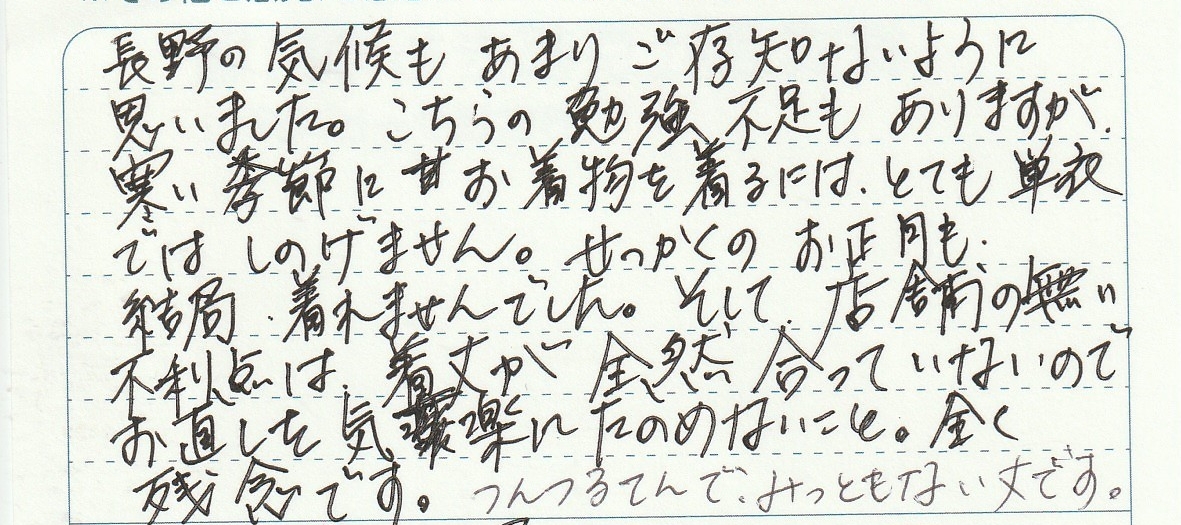 長野の気候も あまり ご存知ないように
思いました。こちらの 勉強不足も ありますが、
寒い季節に甘お着物を着るには、とても単衣
では しのげません。せっかくの お正月も、
結局、着れませんでした。そして、店舗の無い
不利点は、着丈が 全然 合って いないので
お直しを気楽にたのめないこと。全く
残念です。つんつるてんで、みっともない丈です。